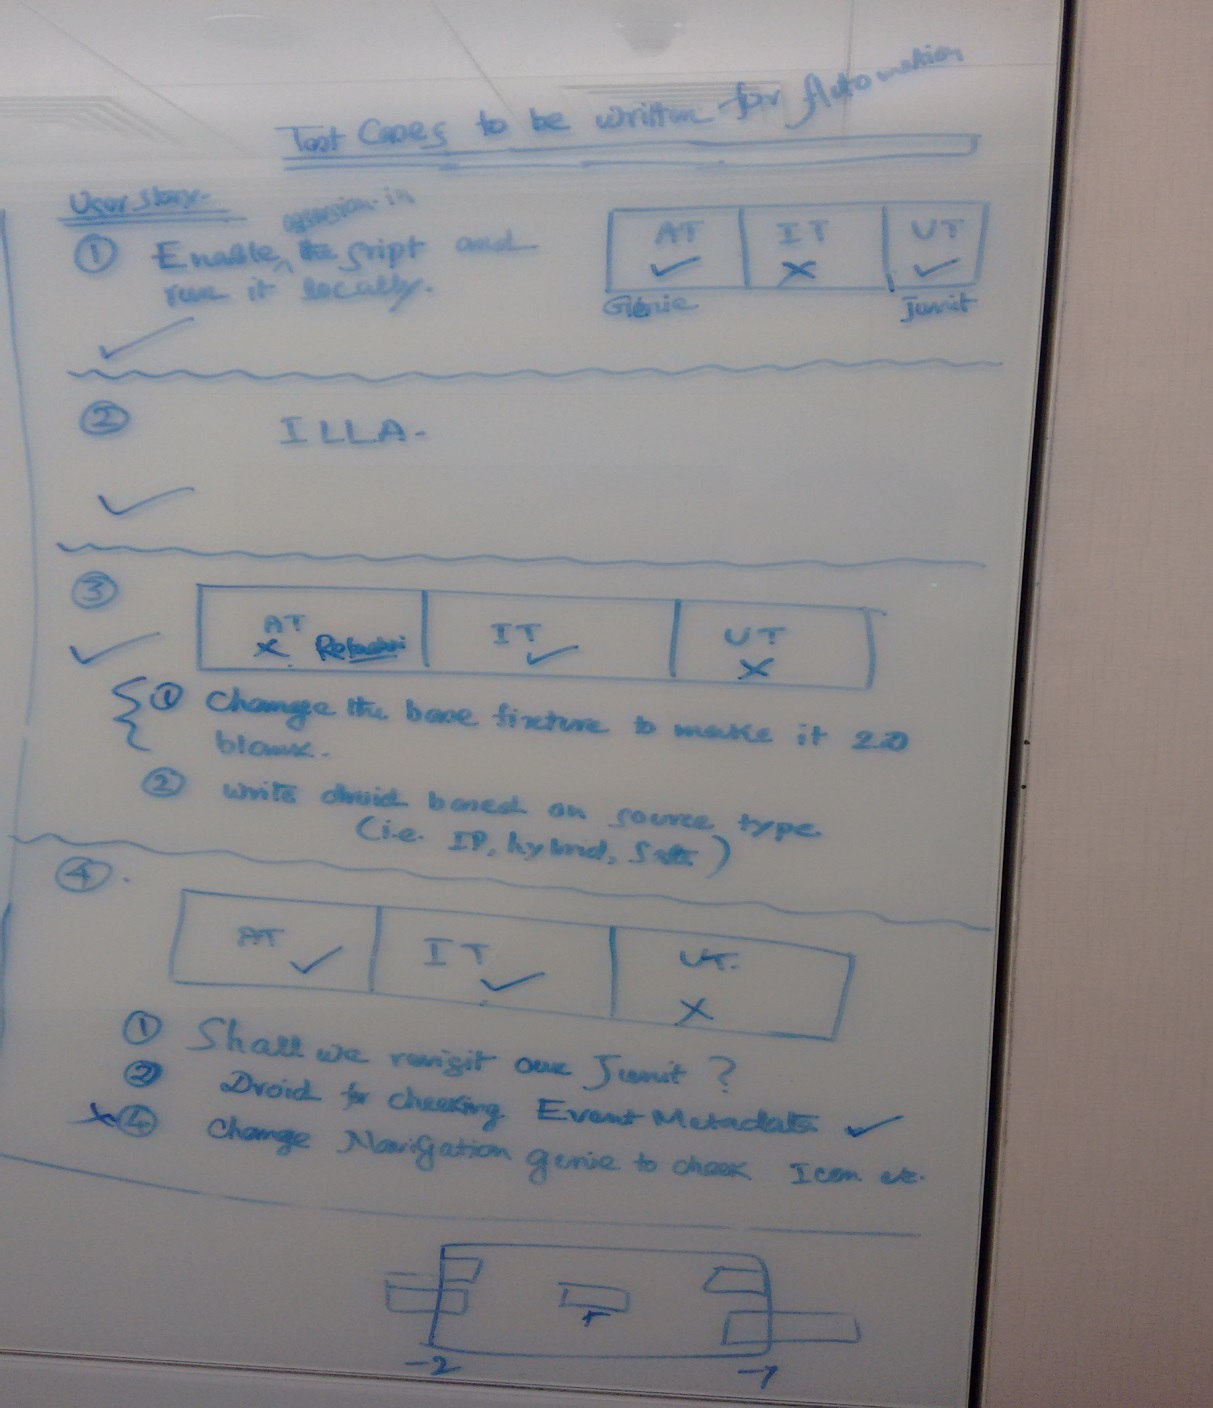 Test Cases to be written for Automation
User Story.
in
① Enable the script and
run it locally.
AT IT UT
✓ ✗ ✓
Genie Junit
✓
②
ILLA.
✓
③
AT IT UT
✗ ✓ ✗
✓
① Change the base fixture to make it 2.0
blank.
② Write droid based on source type
(i.e. IP, hybrid, )
④.
AT ✓ IT ✓ UT.
✗
① Shall we revisit our Junit ?
② Droid for checking Event Metadata ✓
✗ ④ Change Navigation genie to check Icon etc.
+
-2